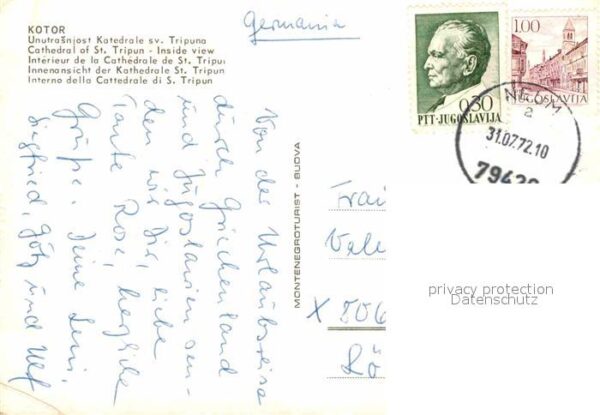 KOTOR
Unutrašnjost Katedrale sv. Tripuna
Cathedral of St. Tripun - Inside view
Intérieur de la Cathédrale de St. Tripun
Innenansicht der Kathedrale St. Tripun
Interno della Cattedrale di S. Tripun
Germania
0.30
PTT-JUGOSLAVIJA
1.00
JUGOSLAVIJA
2
31.07.72.10
79420
MONTENEGROTURIST - BUDVA
Von der Urlaubsreise
durch Griechenland
und Jugoslavien sen-
den wir Dir, liebe
Tante Rose, herzliche
Grüße. Deine Leni
Siegfried, Götz und Ulf
Frau
Vale
X 806
Lö
privacy protection
Datenschutz